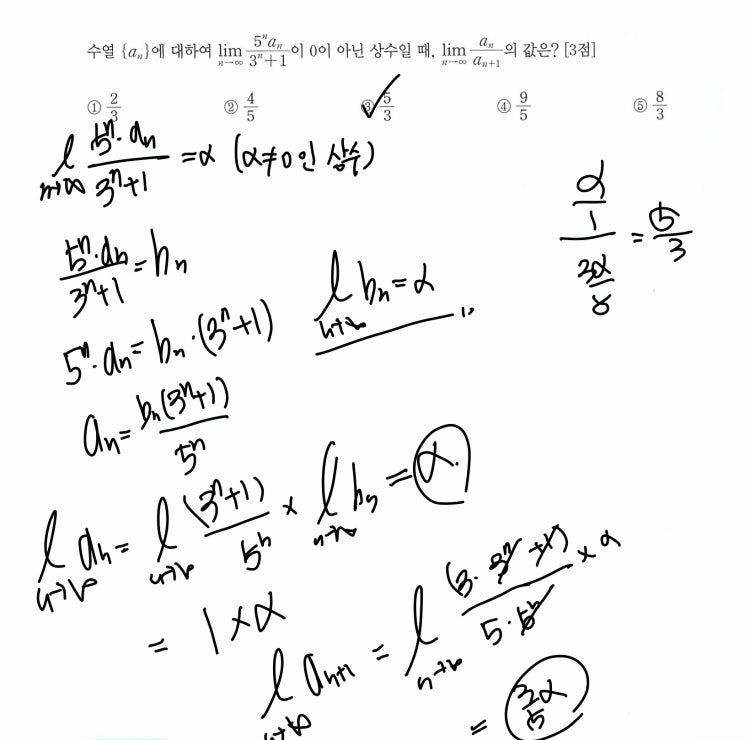 수열 {aₙ}에 대하여 lim_{n→∞} 5ⁿaₙ/(3ⁿ+1) 이 0이 아닌 상수일 때, lim_{n→∞} aₙ/aₙ₊₁ 의 값은? [3점]
① 2/3 ② 4/5 ③ 5/3 ④ 9/5 ⑤ 8/3
l_{n→∞} 5ⁿ·aₙ/(3ⁿ+1) = α (α≠0인 상수)
5ⁿ·aₙ/(3ⁿ+1) = bₙ
l_{n→∞} bₙ = α
5ⁿ·aₙ = bₙ·(3ⁿ+1)
aₙ = bₙ(3ⁿ+1)/5ⁿ
l_{n→∞} aₙ = l_{n→∞} (3ⁿ+1)/5ⁿ × l_{n→∞} bₙ = α.
= 1×α
l_{n→∞} aₙ₊₁ = l_{n→∞} (3·3ⁿ+1)/(5·5ⁿ) × α
= 3/5 α
α/1 = 5/3